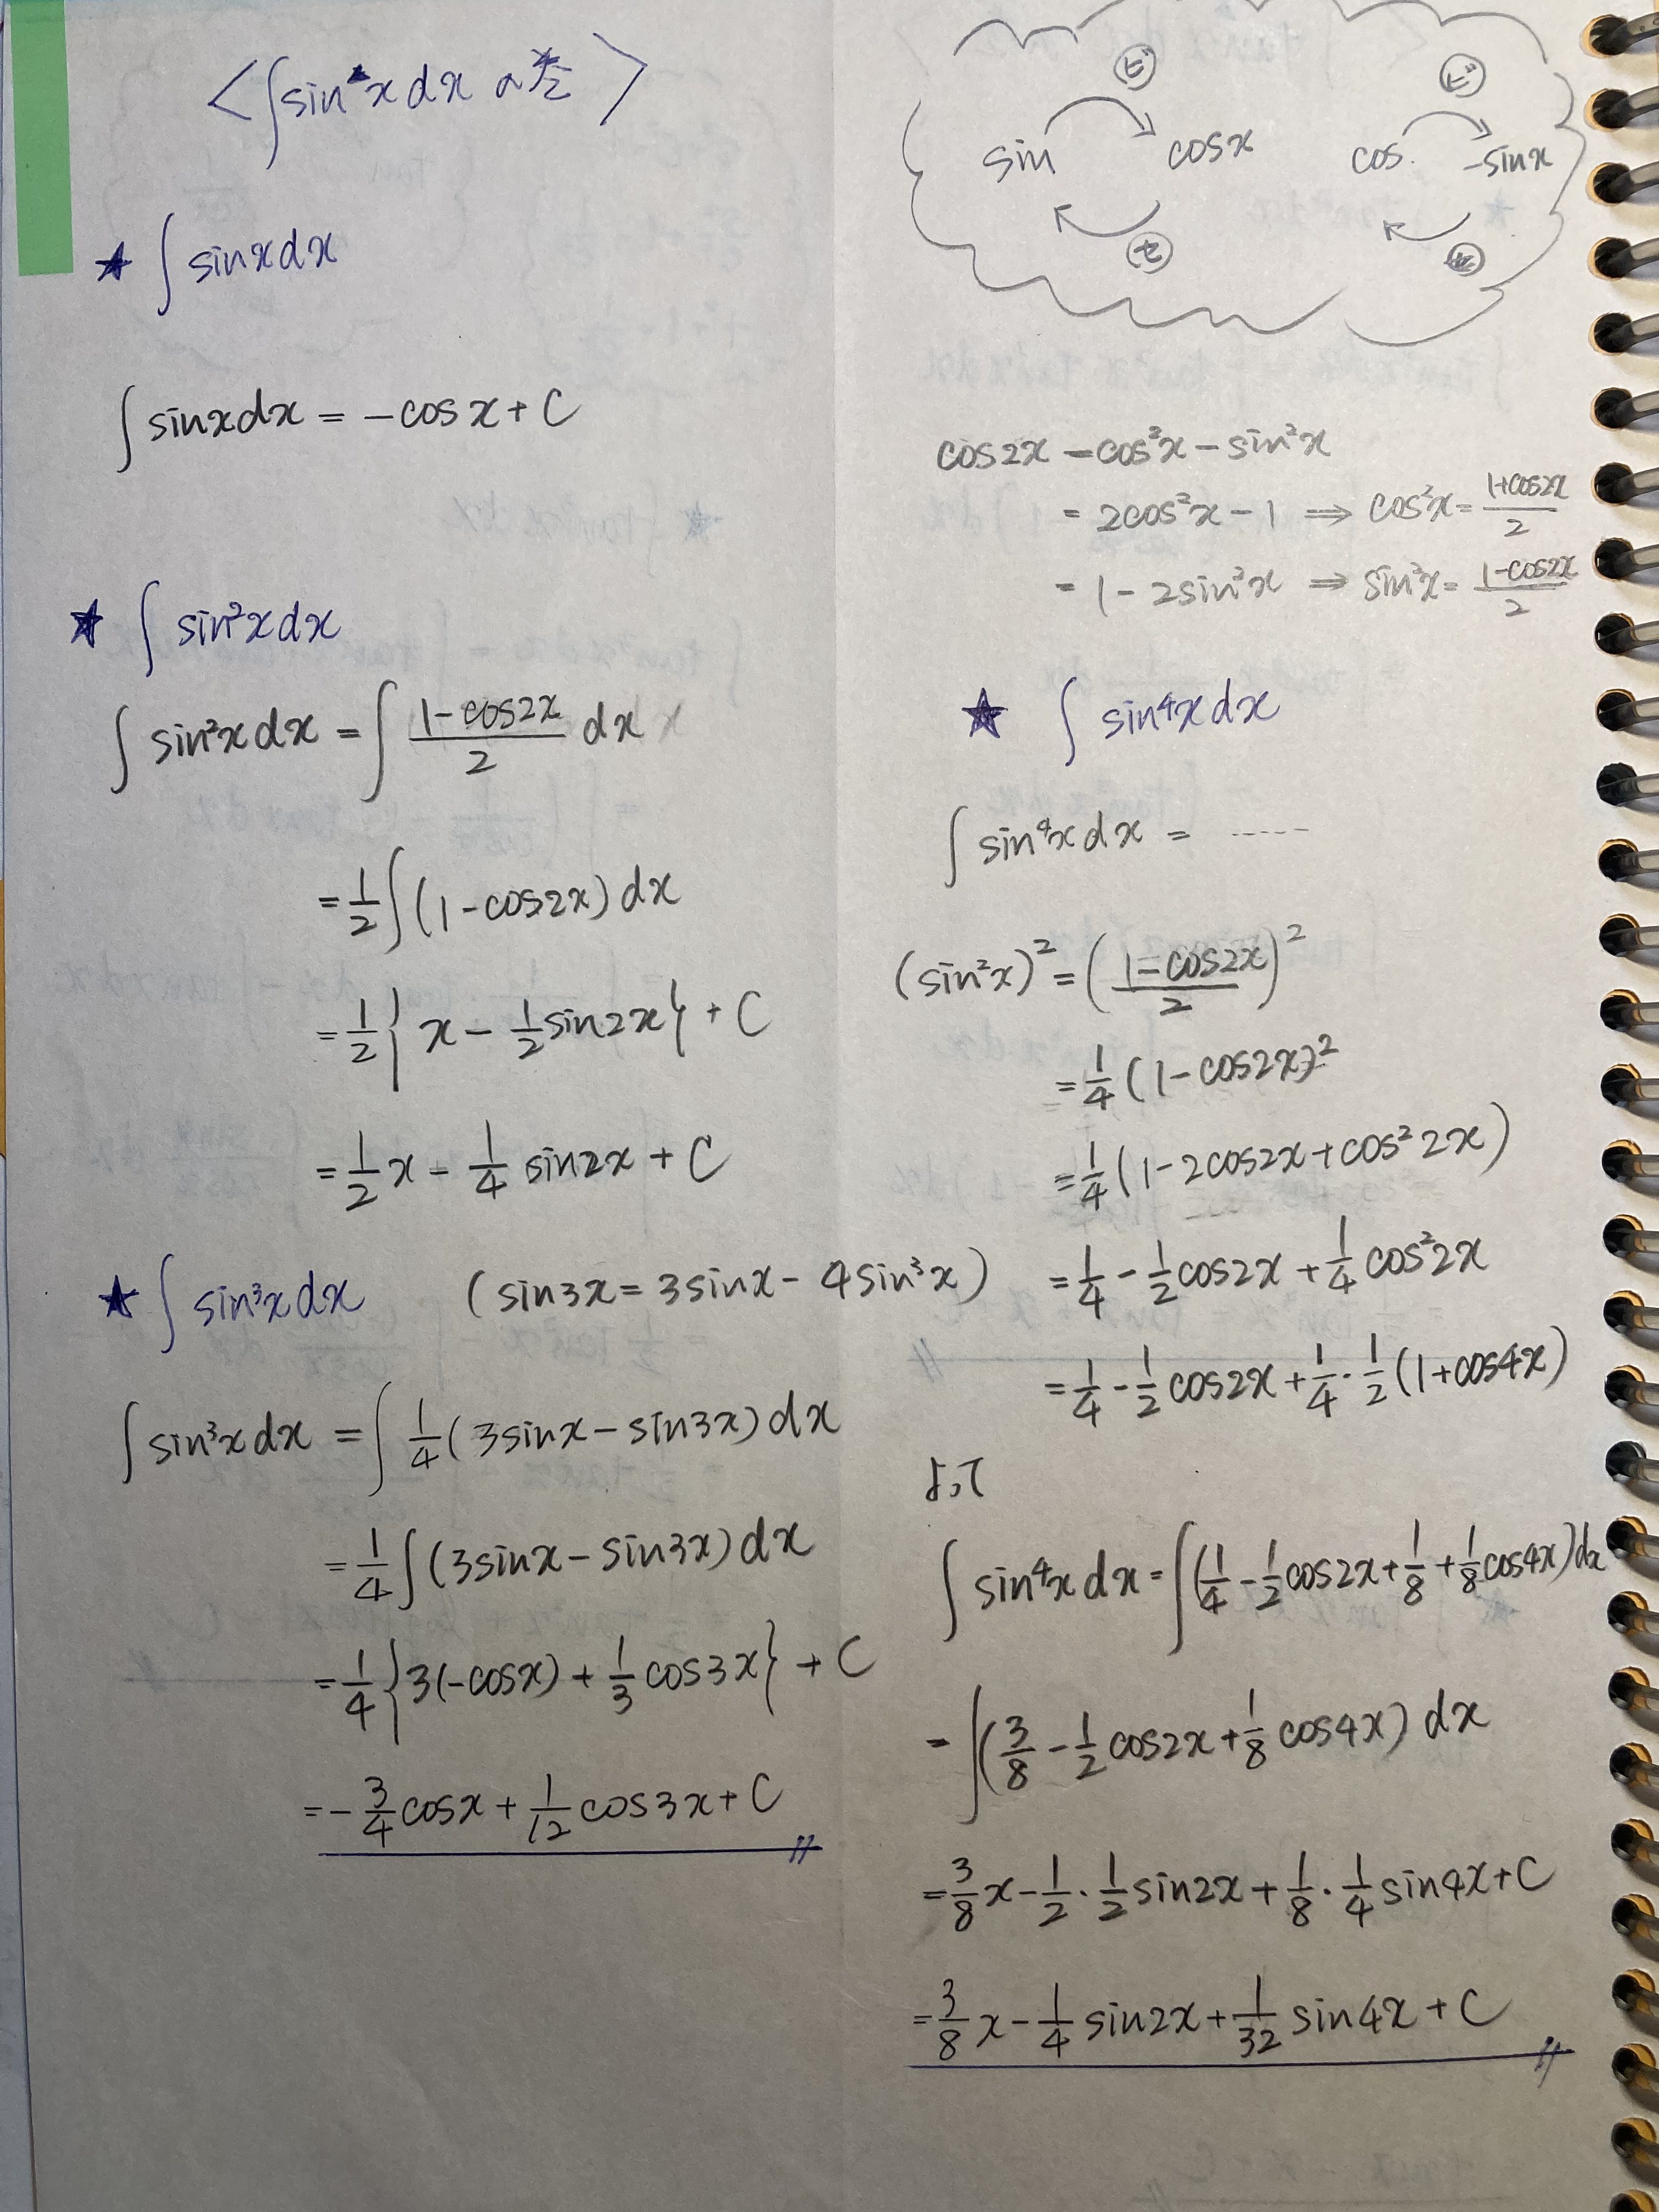 <∫sin^▲x dx の巻>
★ ∫sinxdx
∫sinxdx = -cosx + C
★ ∫sin²xdx
∫sin²xdx = ∫ (1-cos2x)/2 dx
= 1/2 ∫(1-cos2x)dx
= 1/2 { x - 1/2 sin2x } + C
= 1/2 x - 1/4 sin2x + C
★ ∫sin³xdx (sin3x = 3sinx - 4sin³x)
∫sin³xdx = ∫ 1/4 (3sinx - sin3x)dx
= 1/4 ∫(3sinx - sin3x)dx
= 1/4 { 3(-cosx) + 1/3 cos3x } + C
= -3/4 cosx + 1/12 cos3x + C
ビ ビ
sin cosx cos -sinx
セ
cos2x = cos²x - sin²x
= 2cos²x - 1 ⇒ cos²x = (1+cos2x)/2
= 1 - 2sin²x ⇒ sin²x = (1-cos2x)/2
★ ∫sin⁴xdx
∫sin⁴xdx = -----
(sin²x)² = ((1-cos2x)/2)²
= 1/4 (1-cos2x)²
= 1/4 (1-2cos2x+cos²2x)
= 1/4 - 1/2 cos2x + 1/4 cos²2x
= 1/4 - 1/2 cos2x + 1/4・1/2 (1+cos4x)
よって
∫sin⁴xdx = ∫(1/4 - 1/2 cos2x + 1/8 + 1/8 cos4x)dx
= ∫(3/8 - 1/2 cos2x + 1/8 cos4x)dx
= 3/8 x - 1/2・1/2 sin2x + 1/8・1/4 sin4x + C
= 3/8 x - 1/4 sin2x + 1/32 sin4x + C